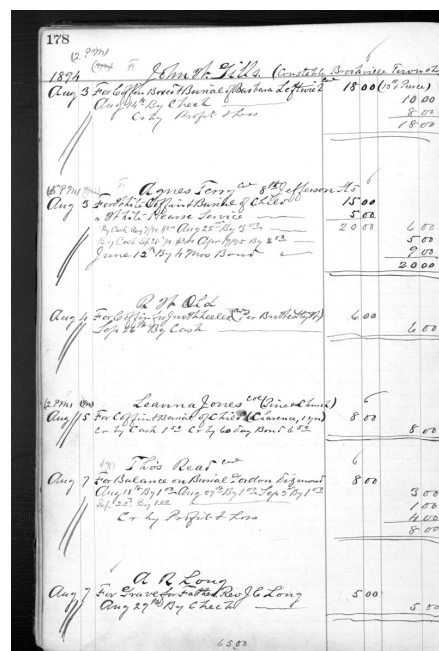 178
(2 PM)
1894 John W. Gills. (Constable Brookville Township
Aug 3 For Coffin Box & Burial of Barbara Leftwich col 18 00 (10% Purce)
Aug 14th By Check 10 00
Cr by Profit & Loss 8 00
18 00
(5 PM) Agnes Terry col 8th & Jefferson Sts
Aug 3 For White Coffin & Burial of Child 15 00
" White Hearse Service 5 00
By Cash Aug Aug 25th By 3 00 20 00 6 00
By Cash Sep 26th Apr 9/95 By 2 00 5 00
June 12th By 4 Mos Bond 9 00
20 00
A W Old
Aug 4 For Coffin for Jno Wheeler (Per Brother) 6 00
Sep 26th By Cash 6 00
(2 PM) Leanna Jones col (Pine St Church)
Aug 5 For Coffin & Burial of Child (Clarence, 1 yr) 8 00
Cr by Cash 1 00 Cr by 60 day Bond 6 50 8 00
Thos Read col
Aug 7 For Balance on Burial Gordon 8 00
Aug 18th By 1 00 Aug 27th By 1 00 Sep 5th By 1 00 3 00
Sep 22d By 1 00 1 00
Cr by Profit & Loss 4 00
8 00
A R Long
Aug 7 For Grave for Father Rev J C Long 5 00
Aug 29th By Check 5 00
65.00